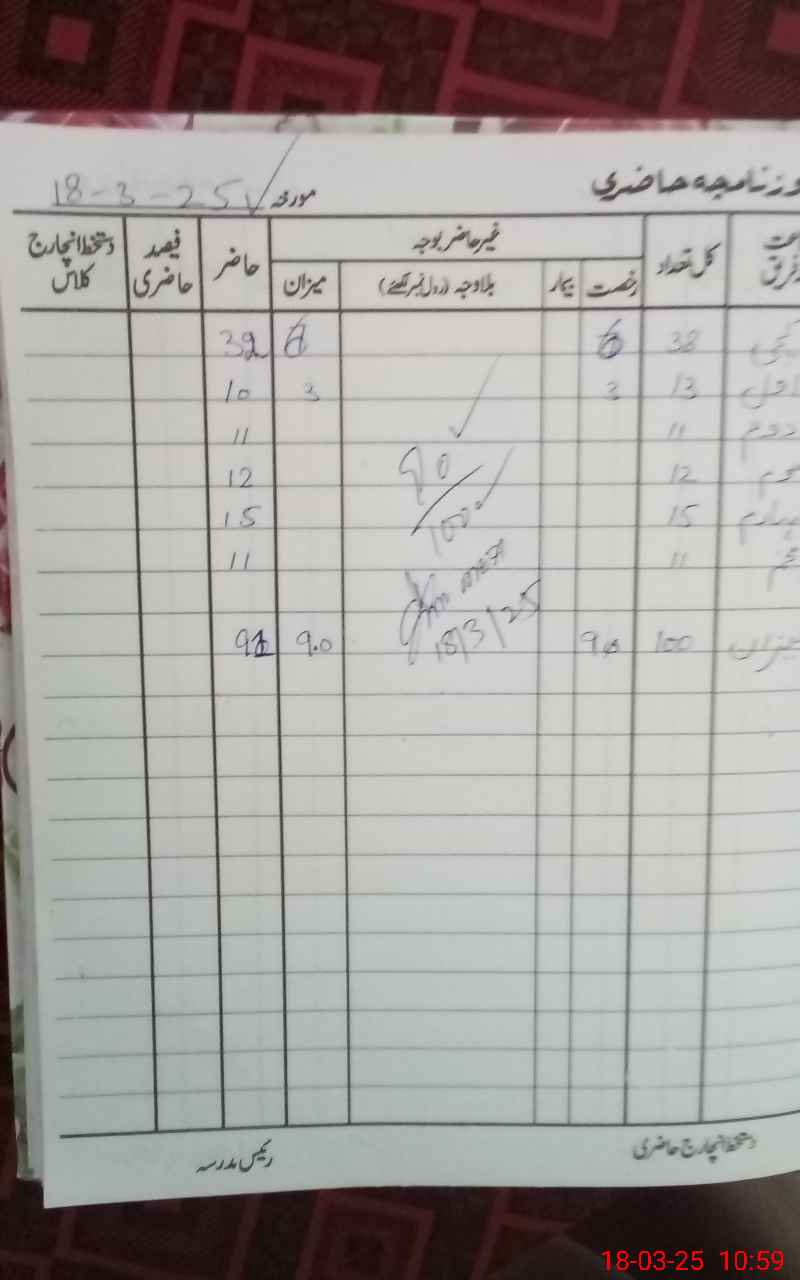 وزنامچہ حاضری
مورخہ 18-3-25
کل تعداد غیر حاضر بوجہ حاضر فیصد حاضری دستخط انچارج کلاس
رخصت بیمار بلاوجہ (رول نمبر لکھئے) میزان
38 6 32
اول 13 3 3 10
دوم 11 11
12 12
15 15
11 11
میزان 100 9.0
90/100
18/3/25
دستخط انچارج حاضری
رئیس مدرسہ
18-03-25 10:59